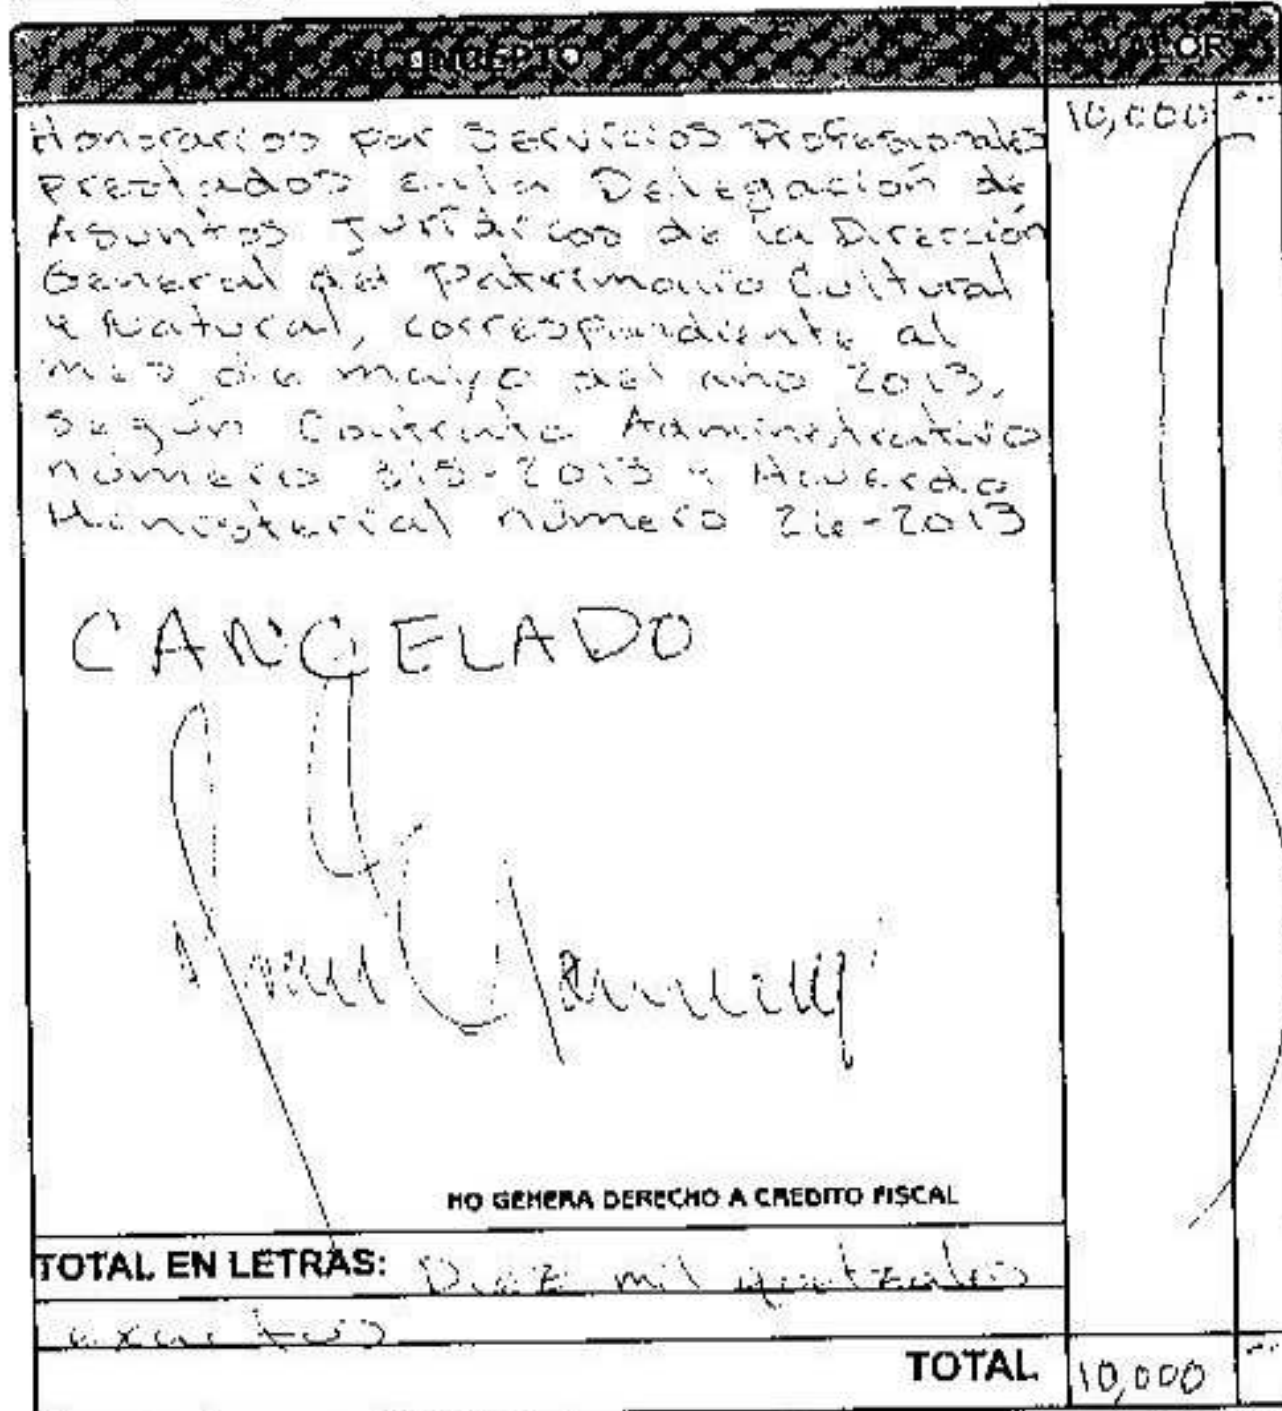 CONCEPTO VALOR
Honorarios por Servicios Profesionales 10,000
prestados en la Delegación de
Asuntos Jurídicos de la Dirección
General del Patrimonio Cultural
y Natural, correspondiente al
mes de mayo del año 2013,
según Contrato Administrativo
número 315-2013 y Acuerdo
Ministerial número 26-2013
CANCELADO
NO GENERA DERECHO A CREDITO FISCAL
TOTAL EN LETRAS: Diez mil quetzales
exactos
TOTAL 10,000